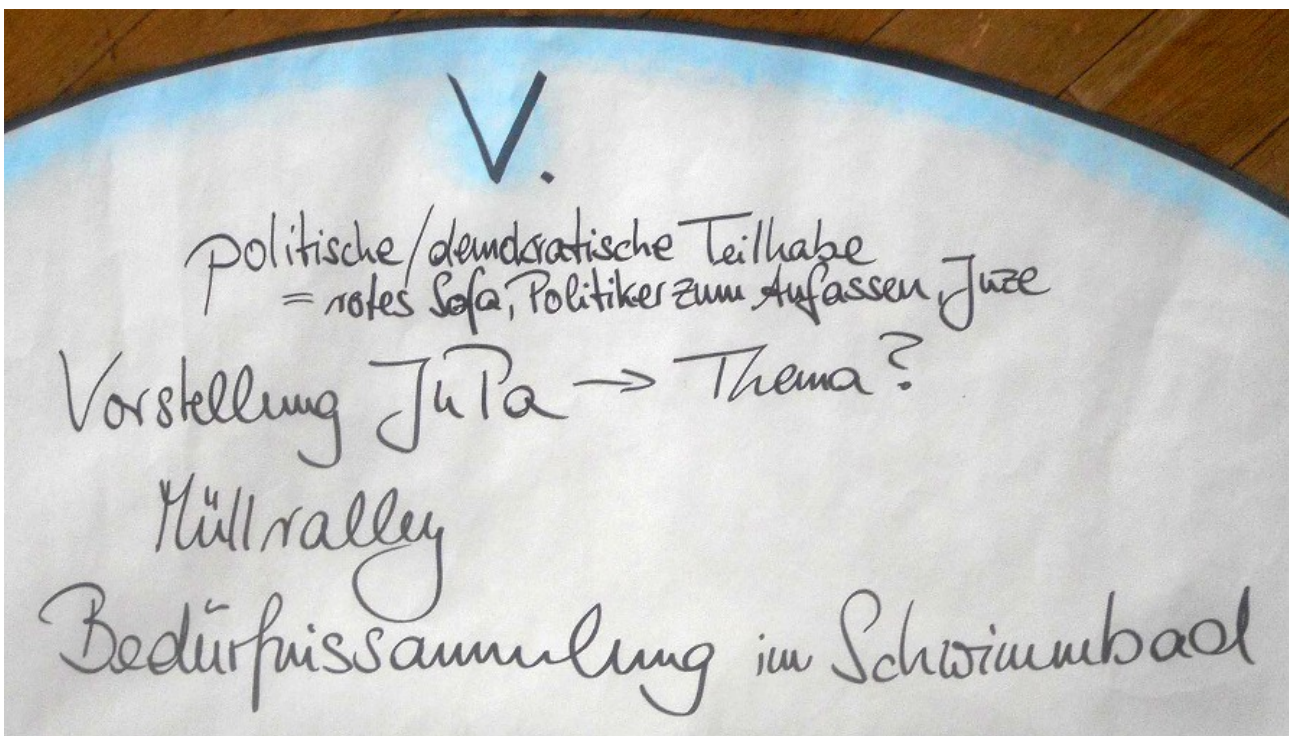 V.
politische/demokratische Teilhabe
= rotes Sofa, Politiker zum Anfassen, Juze
Vorstellung JuPa → Thema?
Müllralley
Bedürfnissammlung im Schwimmbad